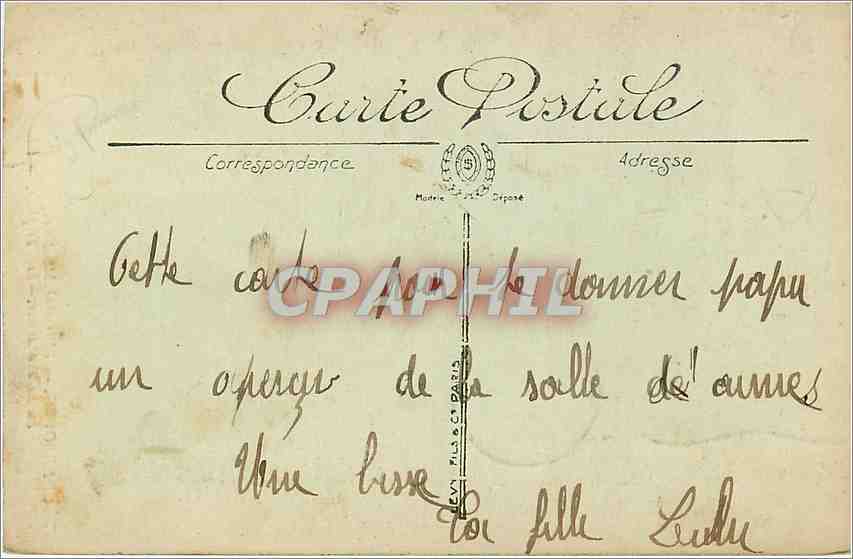 Carte Postale
Correspondance Adresse
Modèle Déposé
Cette carte pour te donner papa
un aperçu de la salle d'armes
Une bisse
Ta fille Lulu
LEVY FILS & Cie PARIS
CPAPHIL